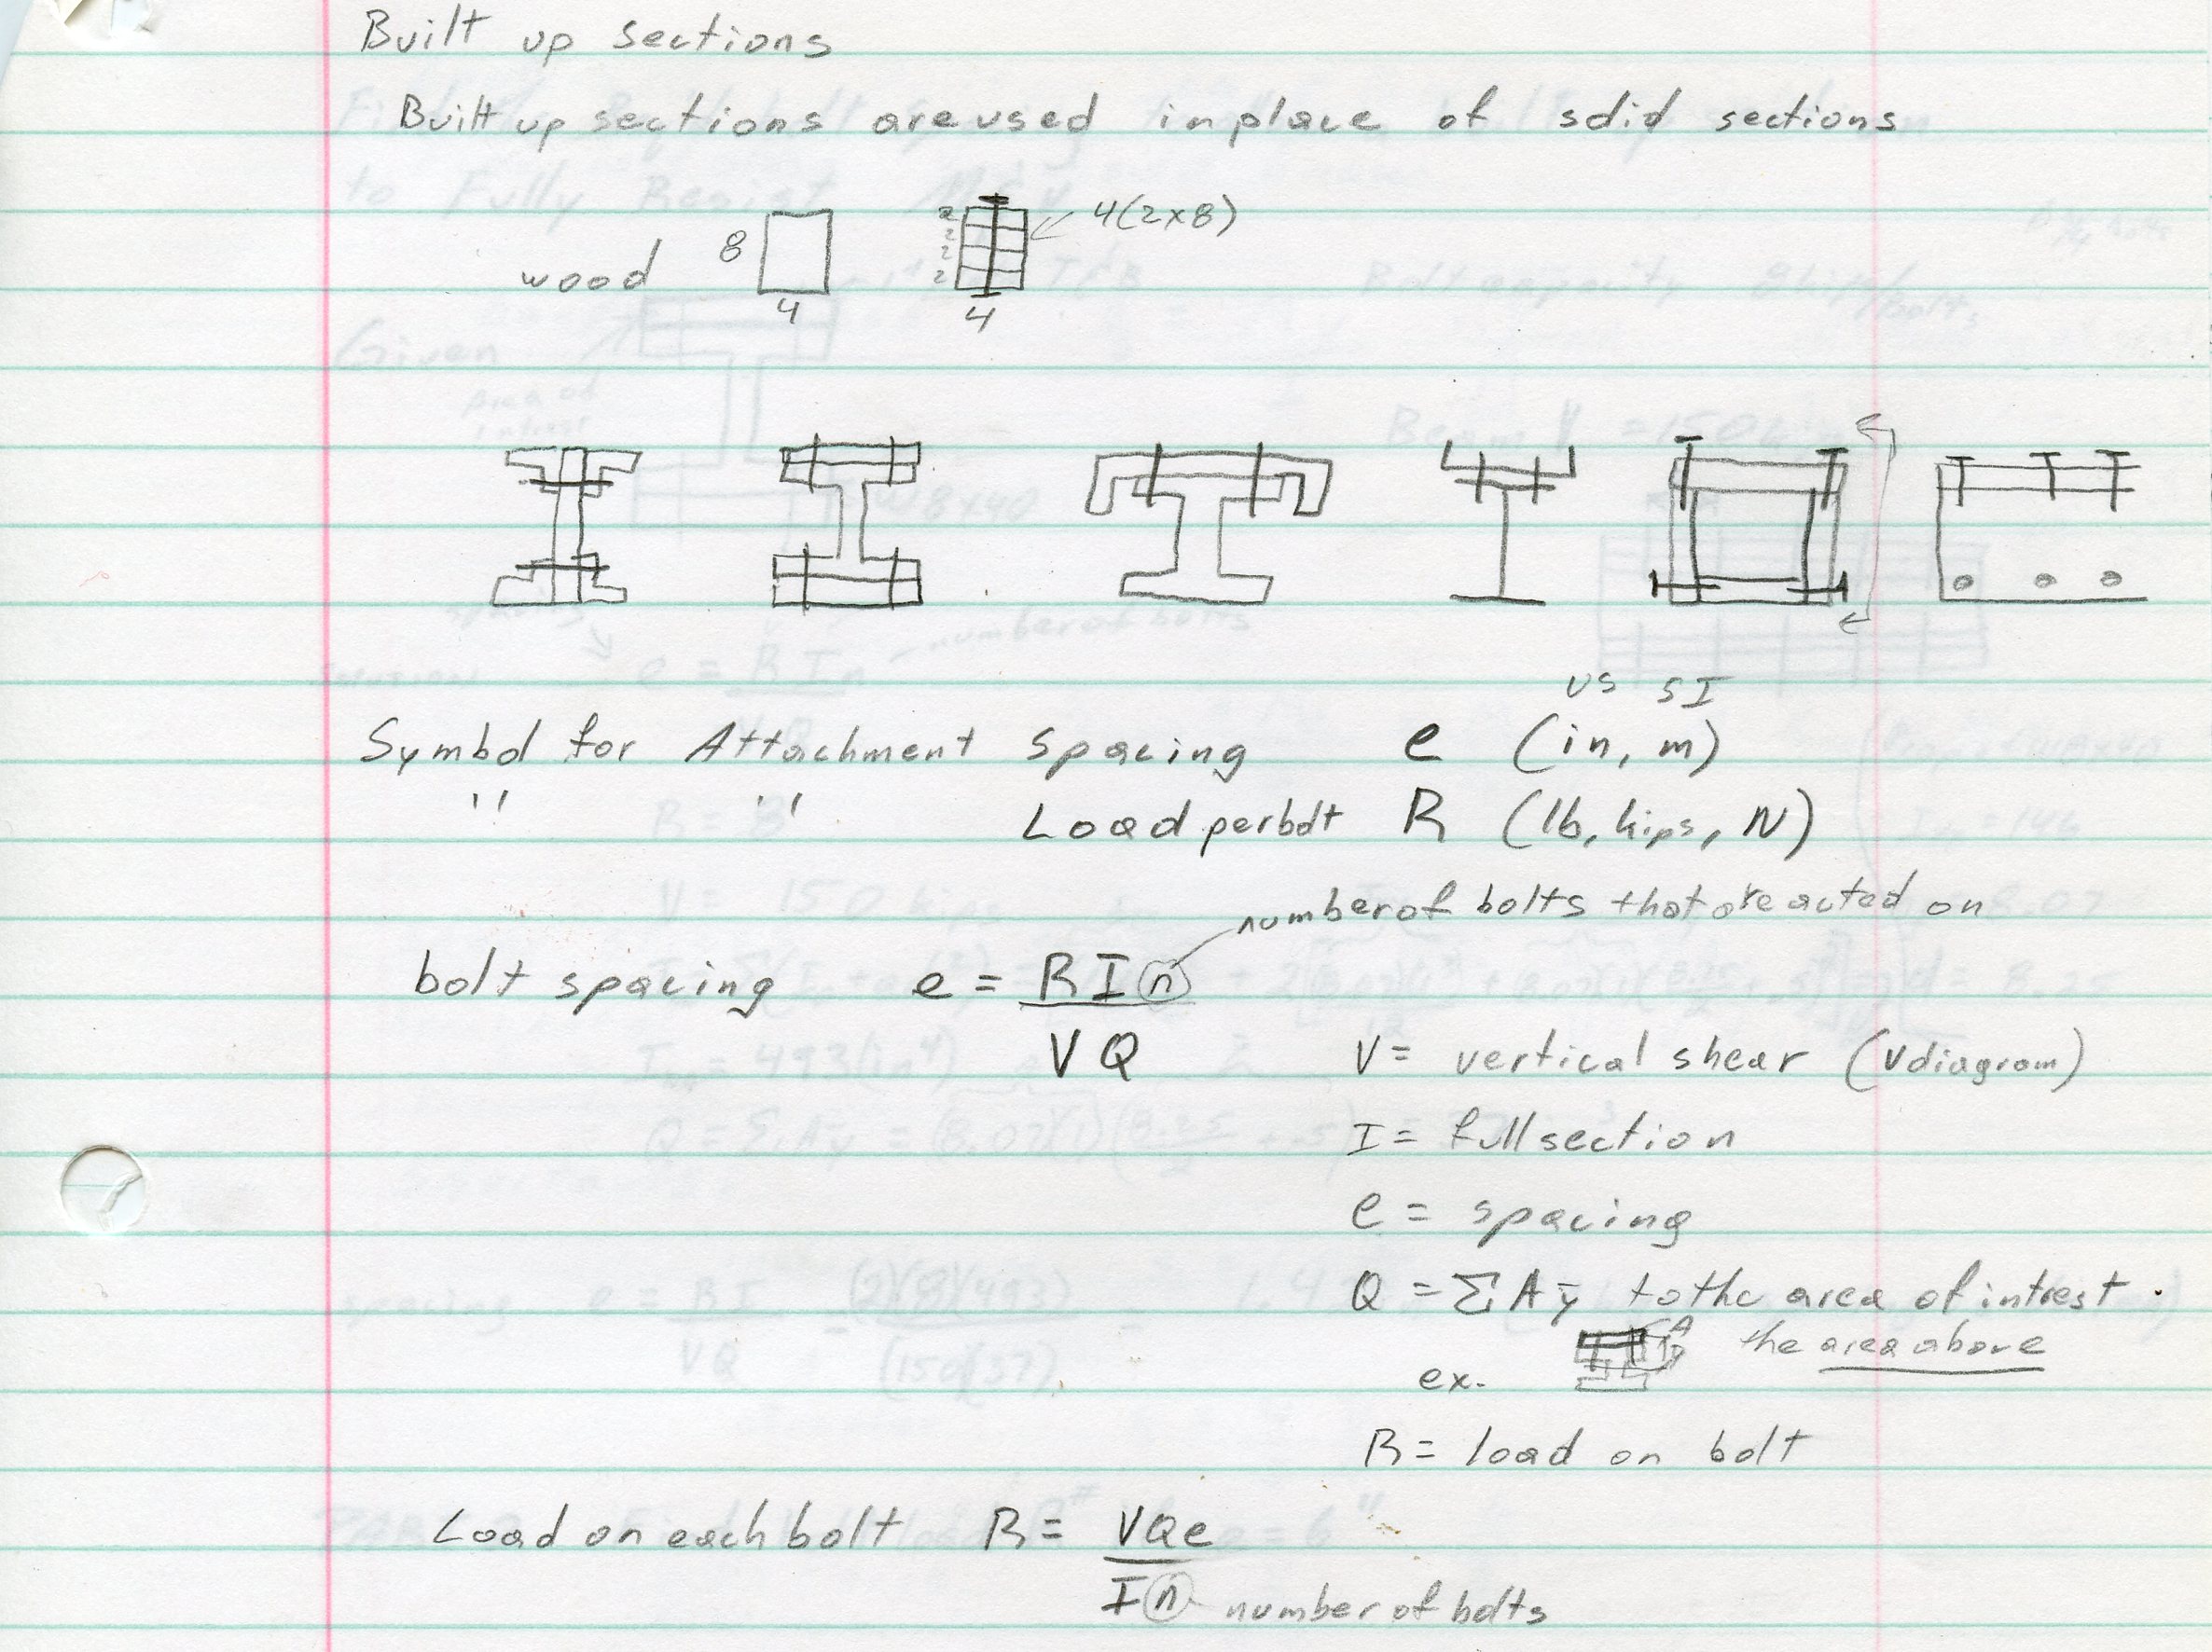 Built up sections
Built up sections are used in place of solid sections
wood 8 4
2 2 2 2 4 4(2x8)
US SI
Symbol for Attachment Spacing e (in, m)
" " Load per bolt R (lb, kips, N)
number of bolts that are acted on
bolt spacing e = RIn
VQ V = vertical shear (V diagram)
I = full section
e = spacing
Q = ΣAȳ to the area of intrest.
ex. A the area above
R = load on bolt
Load on each bolt R = VQe
In number of bolts